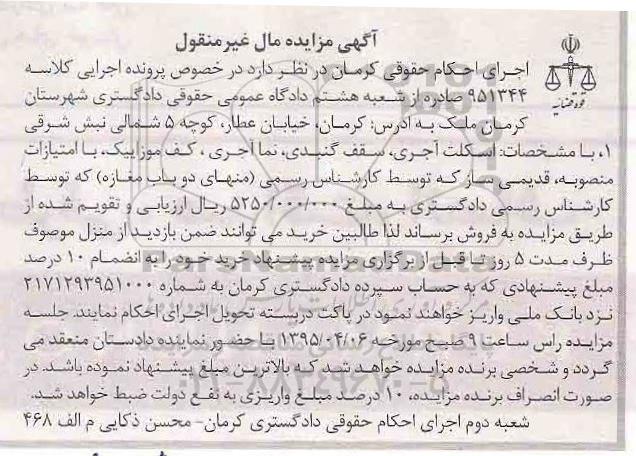 آگهی مزایده مال غیرمنقول
قوه قضائیه
اجرای احکام حقوقی کرمان در نظر دارد در خصوص پرونده اجرایی کلاسه
۹۵۱۳۴۴ صادره از شعبه هشتم دادگاه عمومی حقوقی دادگستری شهرستان
کرمان ملک به آدرس: کرمان، خیابان عطار، کوچه ۵ شمالی نبش شرقی
۱، با مشخصات: اسکلت آجری، سقف گنبدی، نما آجری، کف موزاییک، با امتیازات
منصوبه، قدیمی ساز که توسط کارشناس رسمی (منهای دو باب مغازه) که توسط
کارشناس رسمی دادگستری به مبلغ ۵۲۵۰/۰۰۰/۰۰۰ ریال ارزیابی و تقویم شده از
طریق مزایده به فروش برساند لذا طالبین خرید می توانند ضمن بازدید از منزل موصوف
ظرف مدت ۵ روز تا قبل از برگزاری مزایده پیشنهاد خرید خود را به انضمام ۱۰ درصد
مبلغ پیشنهادی که به حساب سپرده دادگستری کرمان به شماره ۲۱۷۱۲۹۳۹۵۱۰۰۰
نزد بانک ملی واریز خواهند نمود در پاکت دربسته تحویل اجرای احکام نمایند. جلسه
مزایده راس ساعت ۹ صبح مورخه ۱۳۹۵/۰۴/۰۶ با حضور نماینده دادستان منعقد می
گردد و شخصی برنده مزایده خواهد شد که بالاترین مبلغ پیشنهاد نموده باشد. در
صورت انصراف برنده مزایده، ۱۰ درصد مبلغ واریزی به نفع دولت ضبط خواهد شد.
شعبه دوم اجرای احکام حقوقی دادگستری کرمان- محسن ذکایی م الف ۴۶۸
ParsNamadData
۰۲۱-۸۸۳۴۹۶۷۰-۵